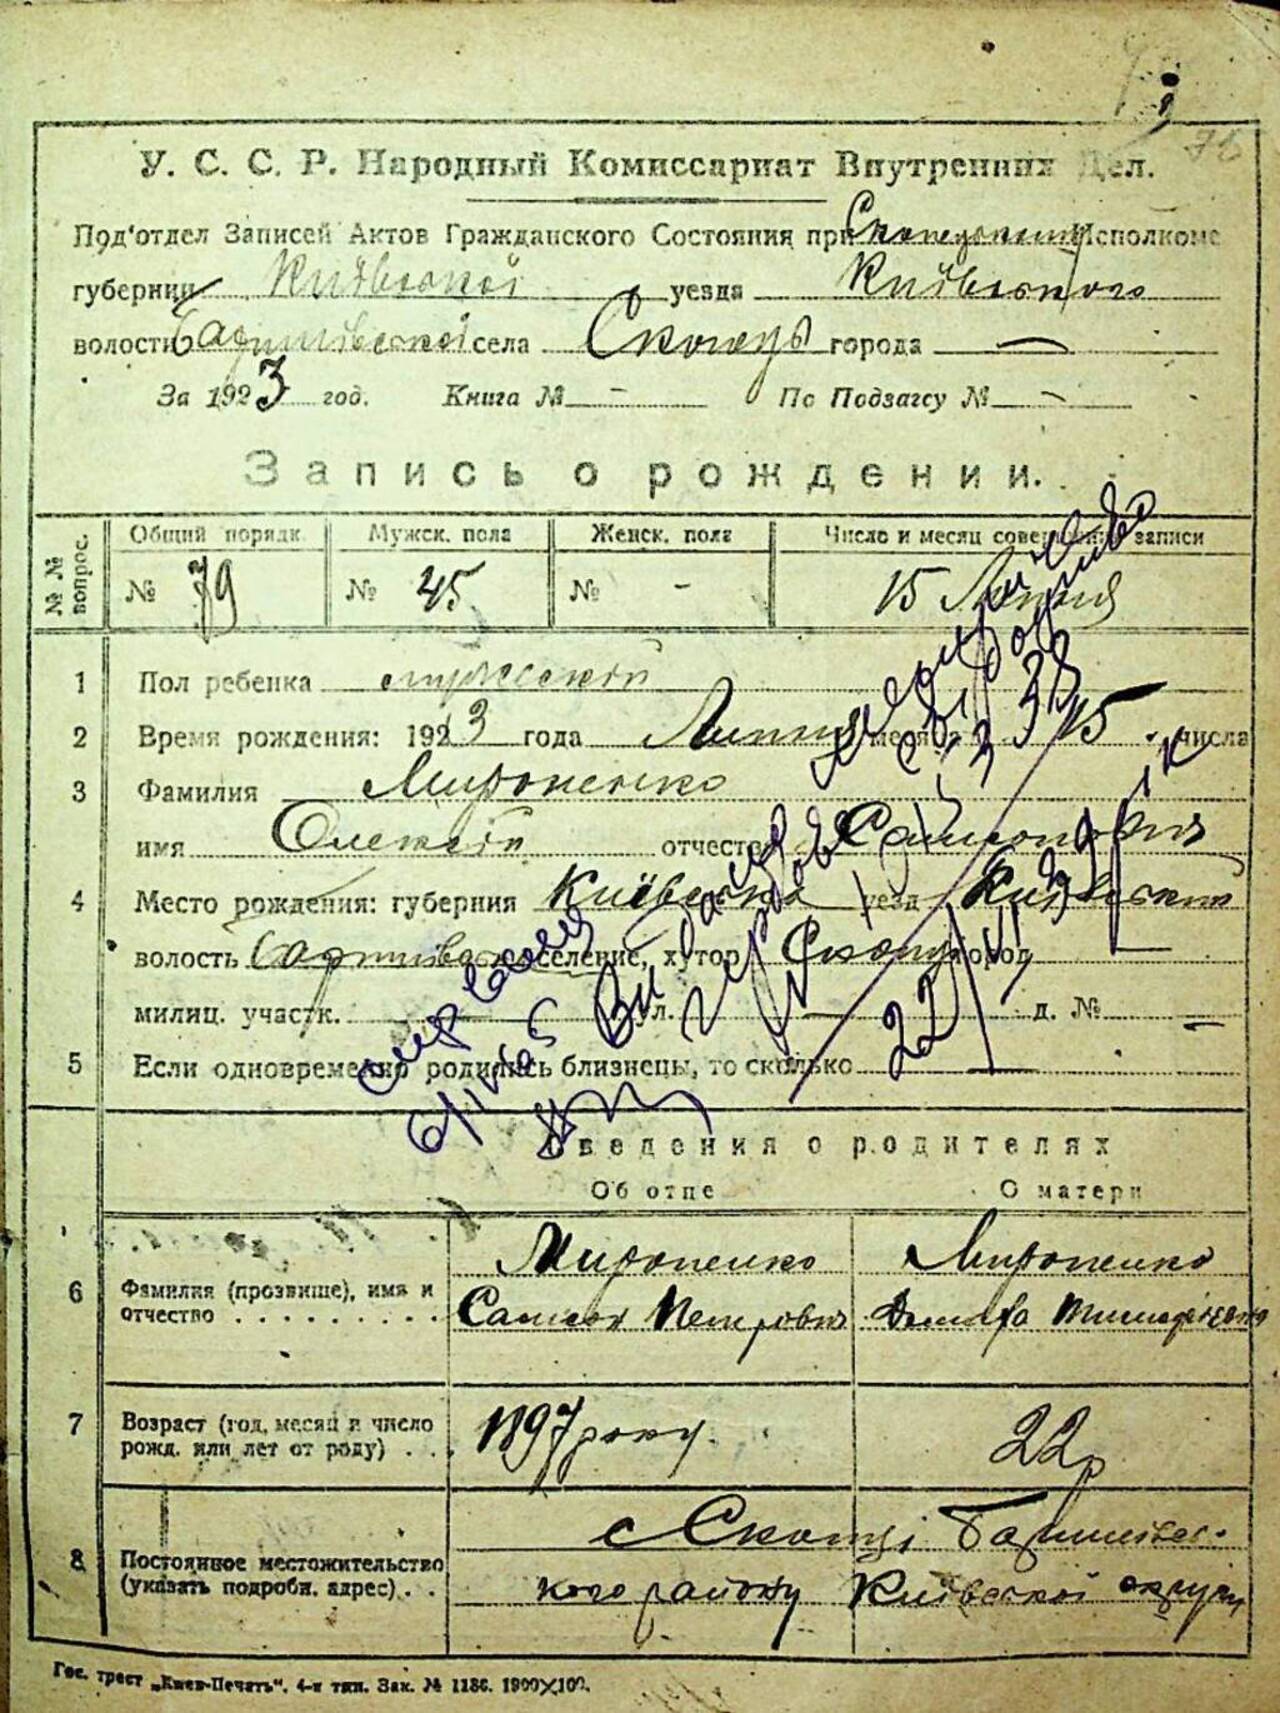 У. С. С. Р. Народный Комиссариат Внутренних Дел.
Под'отдел Записей Актов Гражданского Состояния при Исполкоме
губернии Київської уезда Київського
волости села Скопцы города —
За 1923 год. Книга № - По Подзагсу № -
Запись о рождении.
№№ вопрос.
Общий порядк. Мужск. пола Женск. пола Число и месяц совершения записи
№ 79 № 45 № - 15 Липня
1 Пол ребенка мужский
2 Время рождения: 1923 года Липня месяца 15 числа
3 Фамилия Мироненко
имя Олексій отчество Самсонович
4 Место рождения: губерния Київська уезд Київський
волость селение, хутор Скопці город
милиц. участк. ул. — д. № —
5 Если одновременно родились близнецы, то сколько —
Сведения о родителях
Об отце О матери
6 Фамилия (прозвище), имя и отчество
Мироненко Мироненко
Самсон Петрович
7 Возраст (год, месяц и число рожд. или лет от роду)
1897 року. 22 р
8 Постоянное местожительство (указать подробн. адрес)
с Скопці Баришівсь-
кого району Київської округи
22/VI 39 рік
Гос. трест „Киев-Печать". 4-я тип. Зак. № 1186. 1900×100.